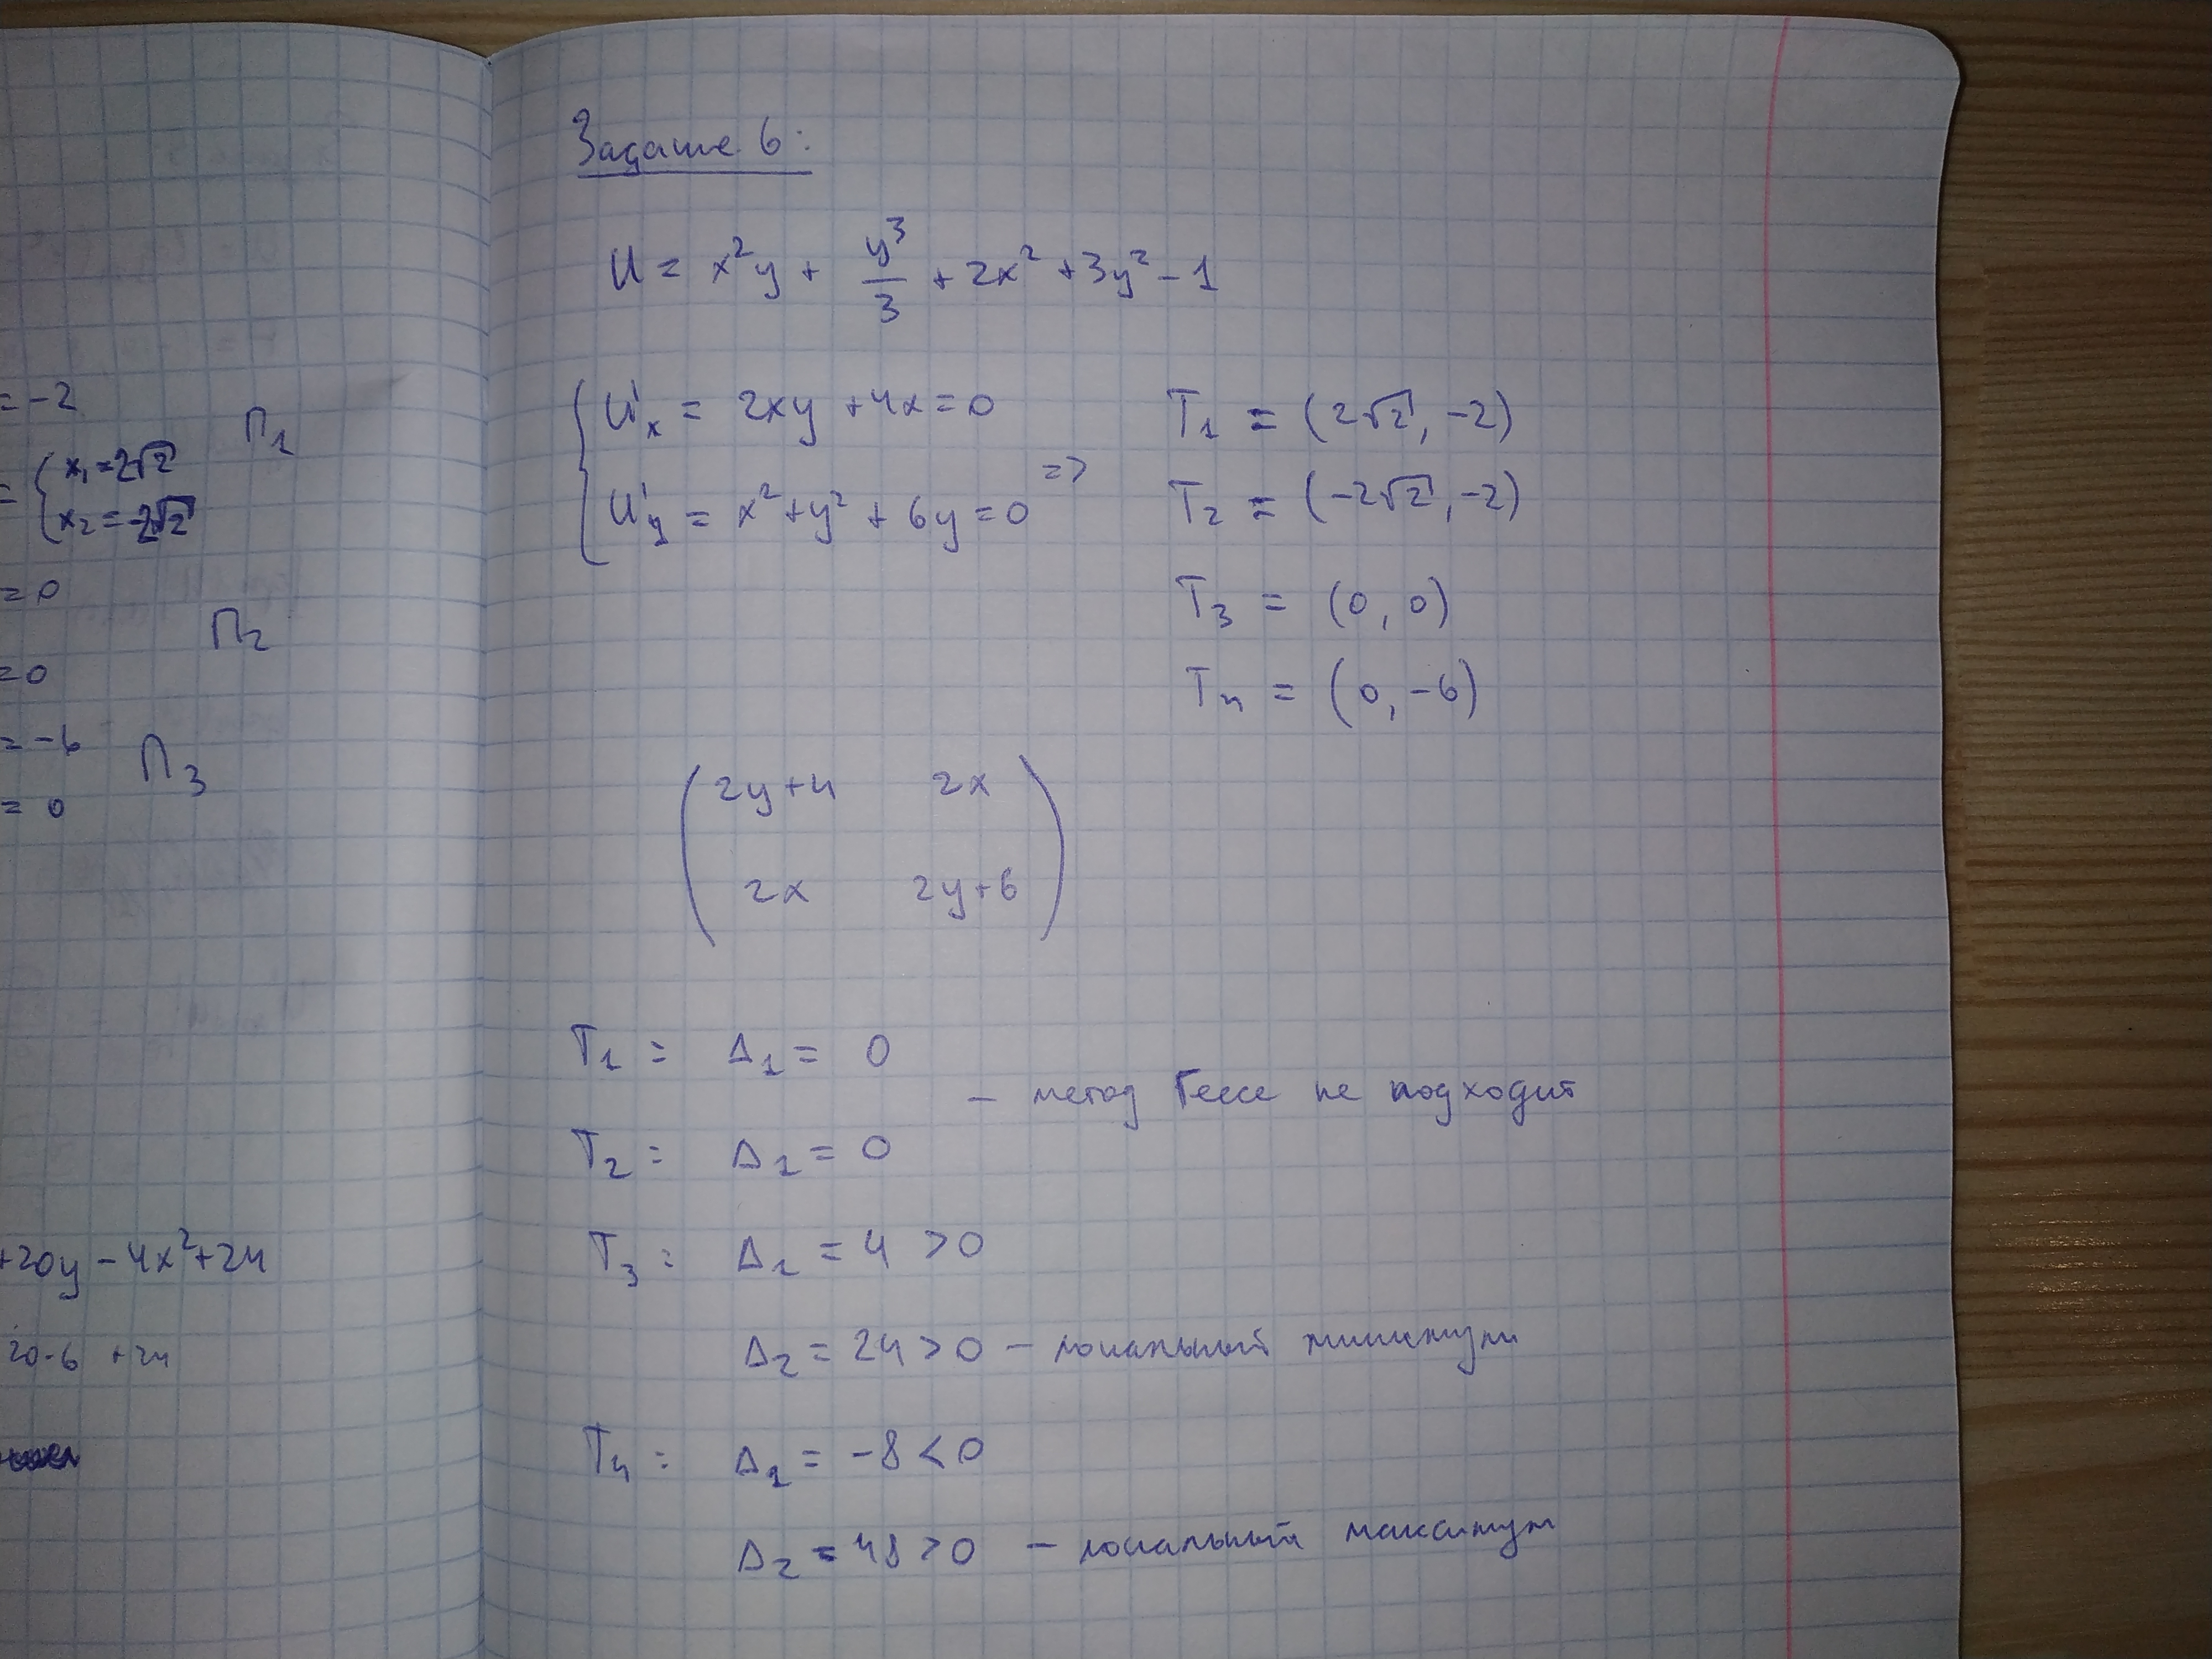 = -2
П1
= { x1 = 2√2
x2 = -2√2
= 0
П2
= 0
= -6
П3
= 0
+20y - 4x² + 24
20·6 + 24
Задание 6:
U = x²y + y³/3 + 2x² + 3y² - 1
{ U'x = 2xy + 4x = 0
U'y = x² + y² + 6y = 0 =>
T1 = (2√2, -2)
T2 = (-2√2, -2)
T3 = (0, 0)
T4 = (0, -6)
( 2y+4 2x
2x 2y+6 )
T1 : Δ1 = 0
– метод Гессе не подходит
T2 : Δ1 = 0
T3 : Δ1 = 4 > 0
Δ2 = 24 > 0 – локальный минимум
T4 : Δ1 = -8 < 0
Δ2 = 48 > 0 – локальный максимум